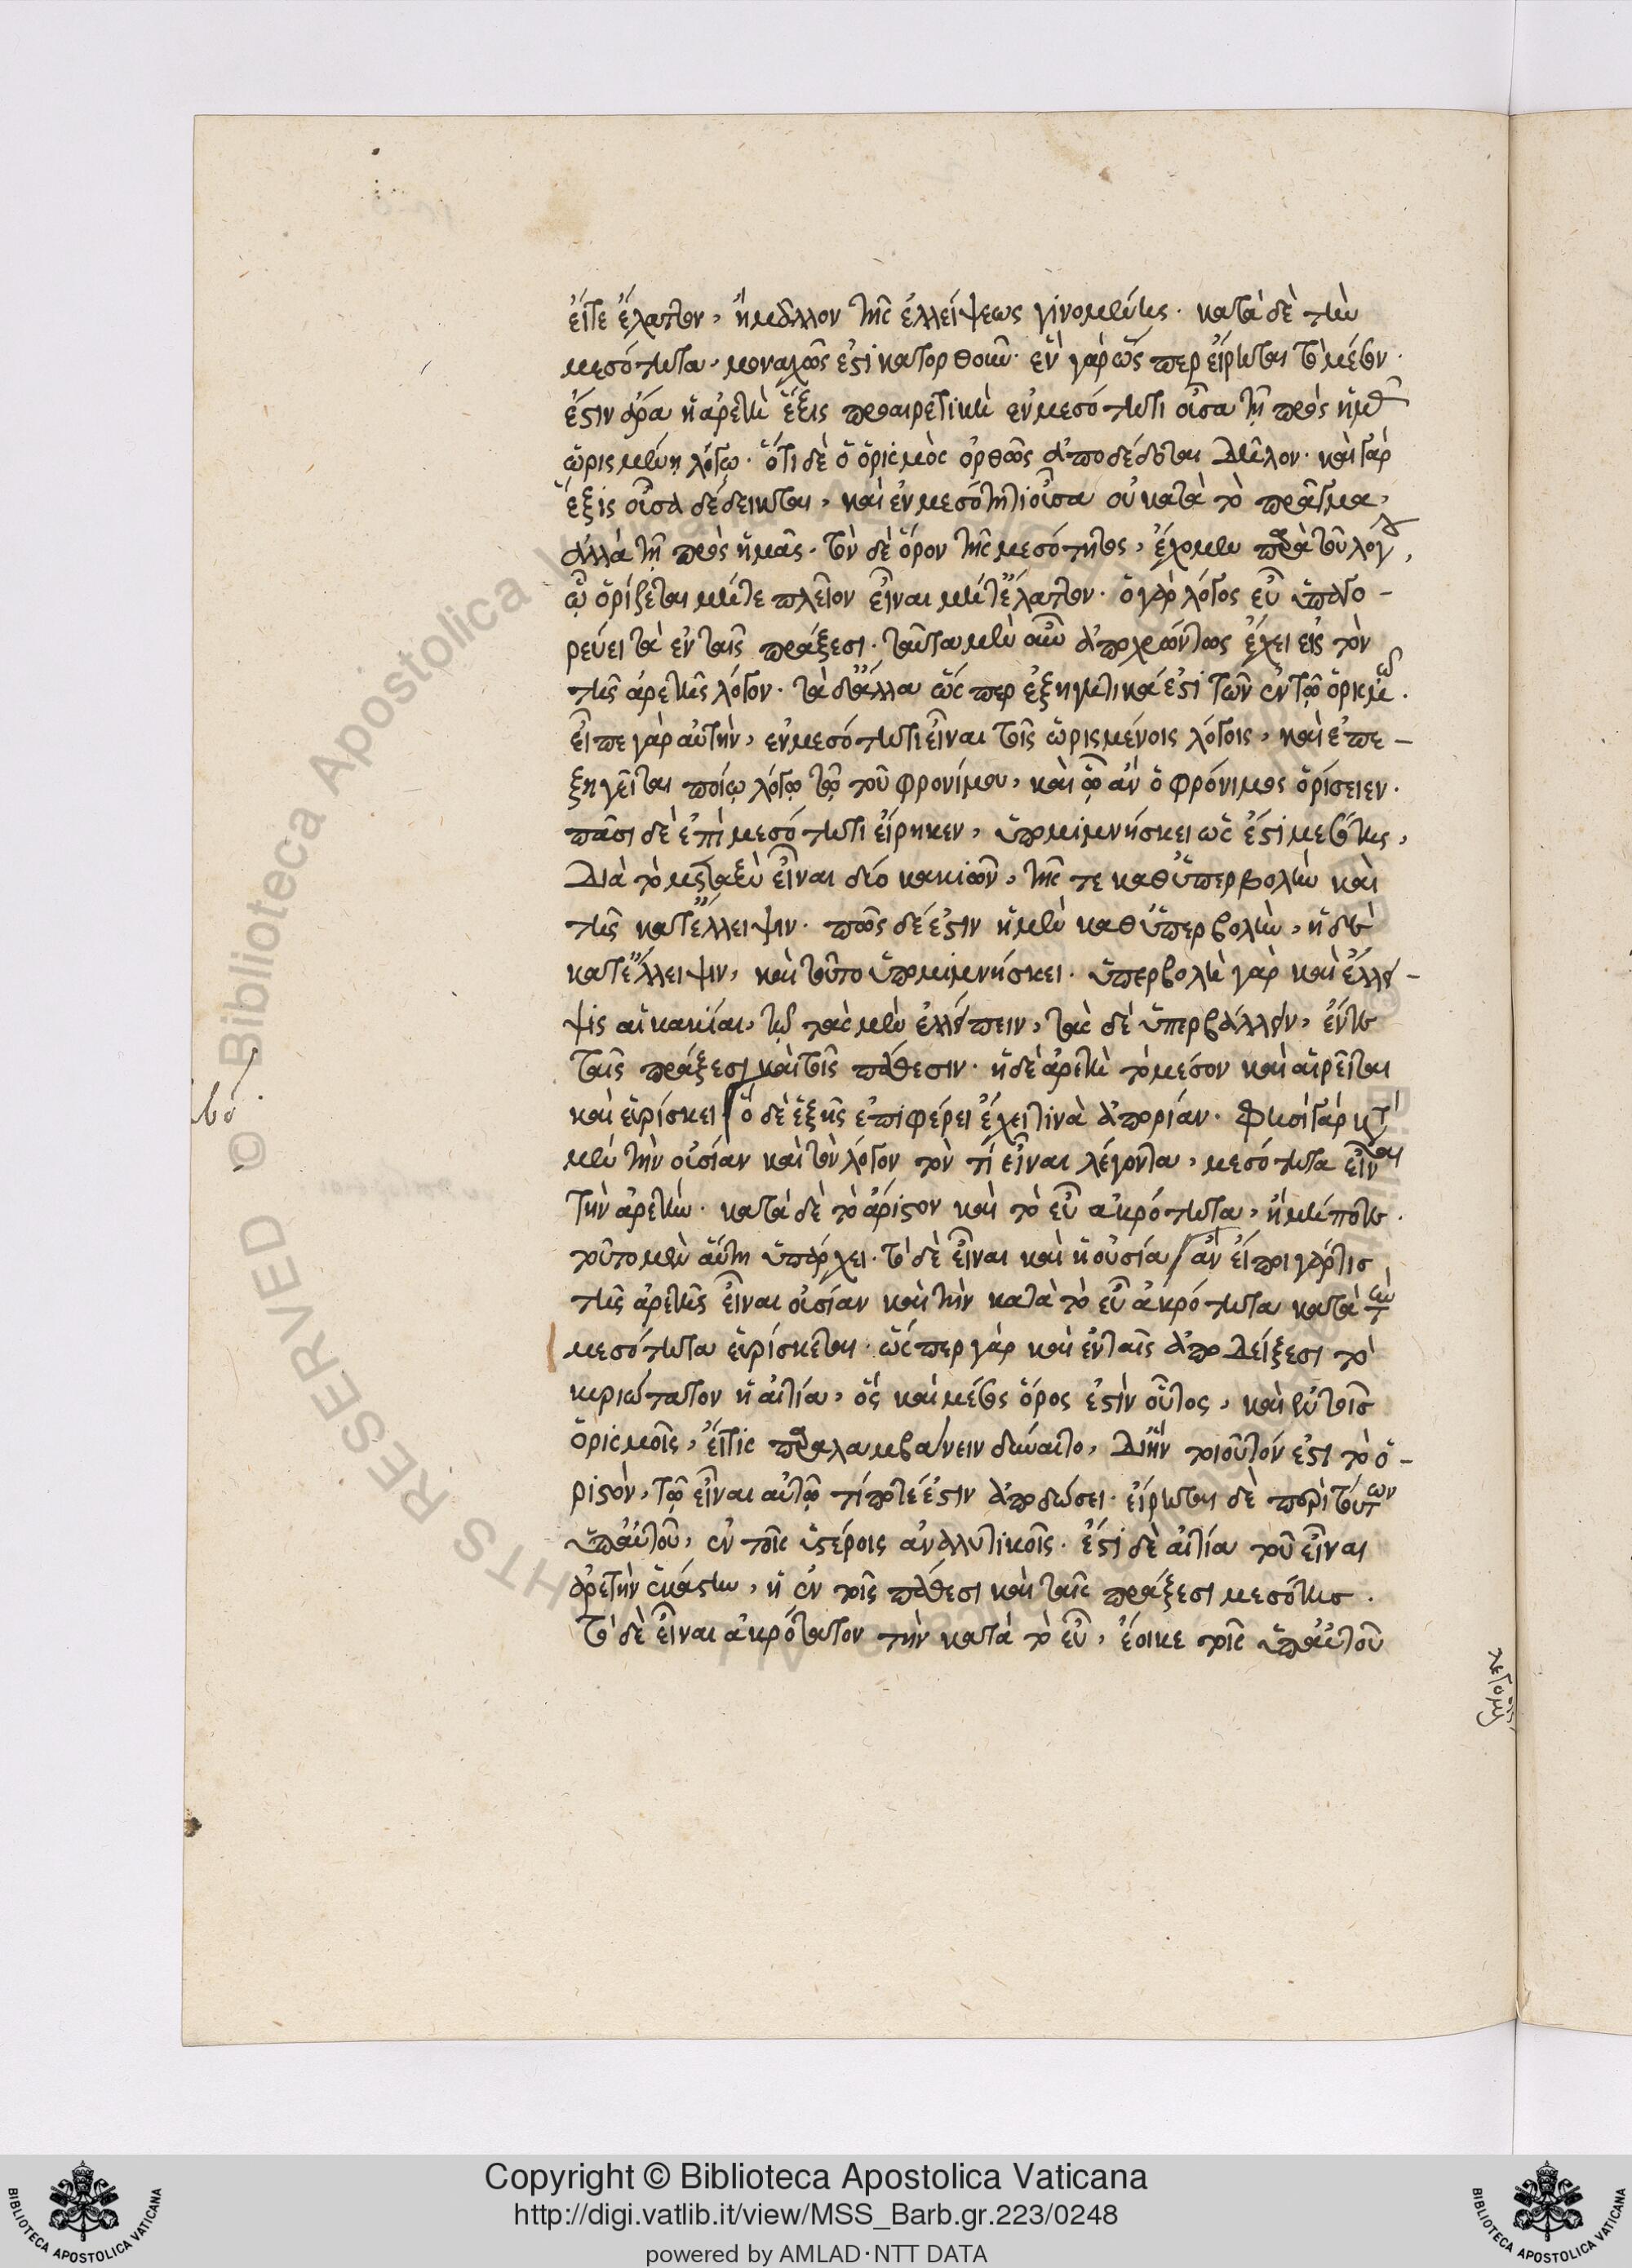 εἴτε ἔλαττον, ἢ μᾶλλον τῆς ἐλλείψεως γινομένης. κατὰ δὲ τὴν
μεσότητα, μοναχῶς ἐστὶ κατορθοῦν. ἓν γὰρ ὥσπερ εἴρηται τὸ μέσον.
ἔστιν ἄρα ἡ ἀρετὴ ἕξις προαιρετικὴ ἐν μεσότητι οὖσα τῇ πρὸς ἡμᾶς
ὡρισμένη λόγῳ. ὅτι δὲ ὁ ὁρισμὸς ὀρθῶς ἀποδέδοται δῆλον. καὶ γὰρ
ἕξις οὖσα δέδεικται, καὶ ἐν μεσότητι οὖσα οὐ κατὰ τὸ πρᾶγμα,
ἀλλὰ τῇ πρὸς ἡμᾶς. τὸν δὲ ὅρον τῆς μεσότητος, ἔχομεν παρὰ τοῦ λόγου,
ᾧ ὁρίζεται μήτε πλεῖον εἶναι μήτ' ἔλαττον. ὁ γὰρ λόγος εὖ ὑπαγο-
ρεύει τὰ ἐν ταῖς πράξεσι. ταῦτα μὲν οὖν ἀποχρώντως ἔχει εἰς τὸν
τῆς ἀρετῆς λόγον. τὰ δ' ἄλλα ὥσπερ ἐξηγητικά ἐστι τῶν ἐν τῷ ὁρισμῷ.
εἶπε γὰρ αὐτὴν, ἐν μεσότητι εἶναι τοῖς ὡρισμένοις λόγοις, καὶ ἐπε-
ξηγεῖται ποίῳ λόγῳ τῷ τοῦ φρονίμου, καὶ ᾧ ἂν ὁ φρόνιμος ὁρίσειεν.
πᾶσι δὲ ἐπὶ μεσότητι εἴρηκεν, ὑπομιμνήσκει ὡς ἔστι μεσότης,
διὰ τὸ μεταξὺ εἶναι δύο κακιῶν, τῆς τε καθ' ὑπερβολὴν καὶ
τῆς κατ' ἔλλειψιν. πῶς δέ ἐστιν ἡ μὲν καθ' ὑπερβολὴν, ἡ δὲ
κατ' ἔλλειψιν, καὶ τοῦτο ὑπομιμνήσκει. ὑπερβολὴ γὰρ καὶ ἔλλει-
ψις αἱ κακίαι, τῷ τὰς μὲν ἐλλείπειν, τὰς δὲ ὑπερβάλλειν, ἔν τε
ταῖς πράξεσι καὶ τοῖς πάθεσιν. ἡ δὲ ἀρετὴ τὸ μέσον καὶ αἱρεῖται
καὶ εὑρίσκει ὁ δὲ ἑξῆς ἐπιφέρει ἔχει τινὰ ἀπορίαν. φησὶ γὰρ κατὰ
μὲν τὴν οὐσίαν καὶ τὸν λόγον τὸν τί εἶναι λέγοντα, μεσότητα εἶναι
τὴν ἀρετήν. κατὰ δὲ τὸ ἄριστον καὶ τὸ εὖ ἀκρότητα, ἢ μήποτε.
τοῦτο μὲν αὕτη ὑπάρχει. τὸ δὲ εἶναι καὶ ἡ οὐσία ἂν εἴποι γάρ τις
τῆς ἀρετῆς εἶναι οὐσίαν καὶ τὴν κατὰ τὸ εὖ ἀκρότητα κατὰ τὴν
μεσότητα εὑρίσκεται. ὥσπερ γὰρ καὶ ἐν ταῖς ἀποδείξεσι τὸ
κυριώτατον ἡ αἰτία, ὃς καὶ μέσος ὅρος ἐστὶν οὗτος, καὶ ἐν τοῖς
ὁρισμοῖς, εἴ τις παραλαμβάνειν δύναιτο, δι' ἣν τοιοῦτόν ἐστι τὸ ὁ-
ριστὸν, τῷ εἶναι αὐτῷ τί ποτέ ἐστιν ἀποδώσει. εἴρηται δὲ περὶ τούτων
ὑπ' αὐτοῦ, ἐν τοῖς ὑστέροις ἀναλυτικοῖς. ἔστι δὲ αἰτία τοῦ εἶναι
ἀρετὴν ἑκάστην, ἡ ἐν τοῖς πάθεσι καὶ ταῖς πράξεσι μεσότης.
τὸ δὲ εἶναι ἀκρότατον τὴν κατὰ τὸ εὖ, ἔοικε τοῖς ὑπ' αὐτοῦ
Copyright © Biblioteca Apostolica Vaticana
http://digi.vatlib.it/view/MSS_Barb.gr.223/0248
powered by AMLAD·NTT DATA